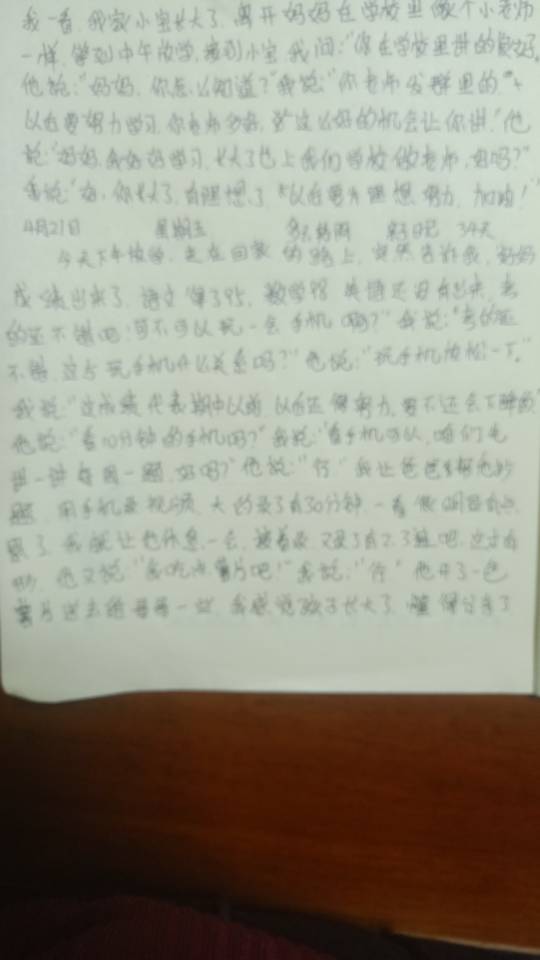 我一看,我家小宝长大了,离开妈妈在学校里做个小老师
一样,等到中午放学,接到小宝,我问:"你在学校里讲的真好,
他说:"妈妈,你怎么知道?"我说:"你老师发群里的"
以后要努力学习,你老师多好,这么好的机会让你讲."他
说:"妈妈,我好好学习,长大了也上我们学校做老师,好吗?"
我说:"好,你长大了,有理想了,以后要为理想努力,加油!"
4月21日 星期五 日记 34天
今天下午放学,走在回家的路上,突然告诉我,妈妈
成绩出来了,语文得了95,数学98 英语还没有出来,考
的还不错吧!可不可以玩一会手机啊?"我说:"考的还
不错,这与玩手机什么关系吗?"他说:"玩手机放松一下."
我说:"这成绩代表期中以前,以后还得努力,要不还会下降的"
他说:"看10分钟的手机吗?"我说:"看手机可以,咱们先
讲一讲每周一题,好吗?"他说:"行"我让爸爸
题,用手机录视频,大约录了有30分钟,一看
累了,我就让他休息一会,接着录,又录了有2.3遍吧,
他又说:"我吃点薯片吧!"我说:"行"他开了一包
薯片送去给哥哥一些,我感觉孩子长大了,懂得分享了